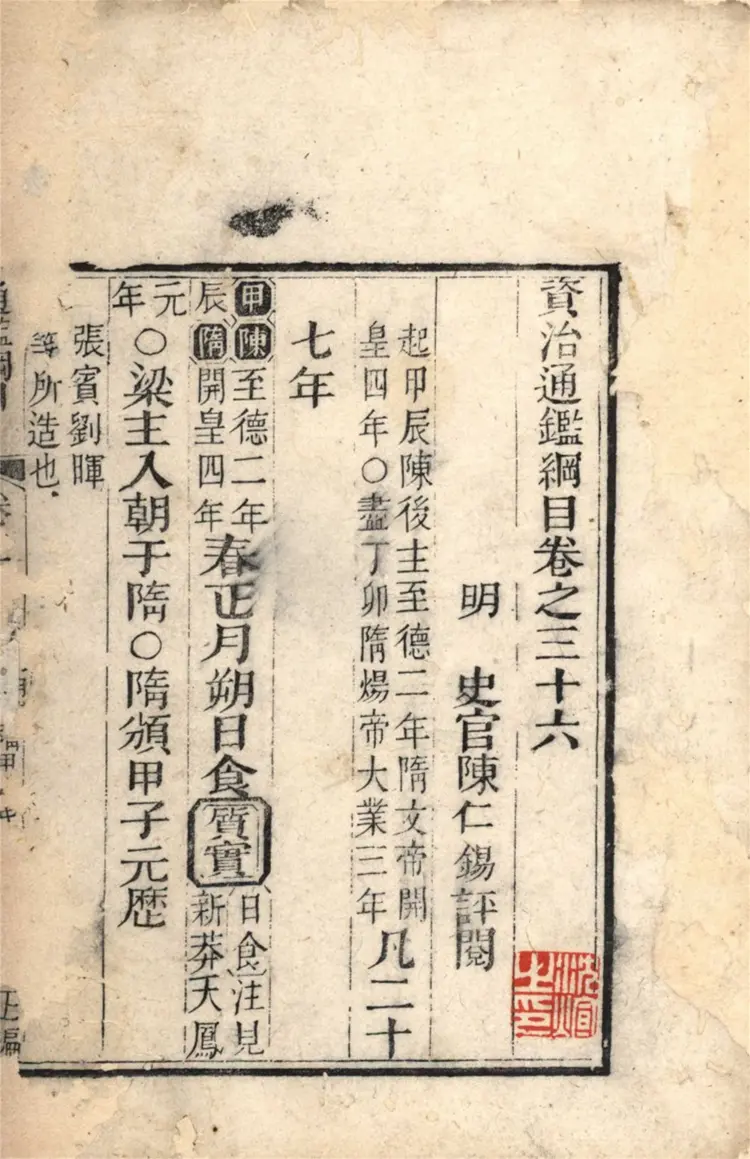 資治通鑑綱目卷之三十六
明 史官陳仁錫評閱
起甲辰陳後主至德二年隋文帝開
皇四年○盡丁卯隋煬帝大業三年
凡二十
七年
甲陳至德二年
辰隋開皇四年
春正月朔日食質實
日食注見
新莽天鳳
元年
○梁主入朝于隋○隋頒甲子元歷
張賓劉暉
等所造也